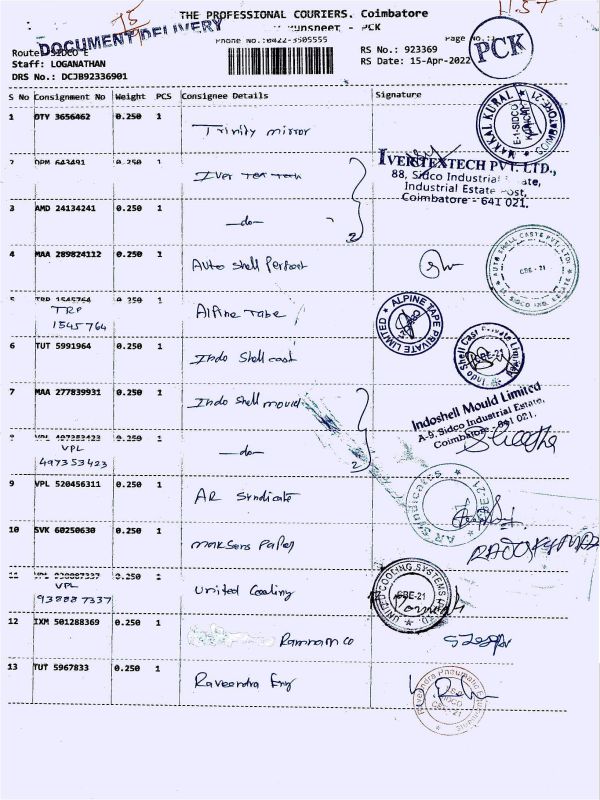 11.57
75
THE PROFESSIONAL COURIERS. Coimbatore
DOCUMENT DELIVERY
Runsheet - PCK
Phone No.:0422-3505555
Page No.:1
PCK
Route: SIDCO E
RS No.: 923369
Staff: LOGANATHAN
RS Date: 15-Apr-2022
DRS No.: DCJB92336901
S No Consignment No Weight PCS Consignee Details Signature
1 DTY 3656462 0.250 1 Trinity mirror
MAKKAL KURAL
E-1-SIDCO
COIMBATORE-21
2 DPM 643491 0.250 1
IVERITEXTECH PVT. LTD.,
88, Sidco Industrial Estate,
Industrial Estate Post,
Coimbatore - 641 021.
3 AMD 24134241 0.250 1 -do-
2
4 MAA 289824112 0.250 1 Auto Shell Perfort
AUTO SHELL CASTS PVT. LTD.
CBE - 21
SIDCO IND. ESTATE
5 TRP 1545764 0.250 1 Alpine Tape
TRP
1545764
ALPINE TAPE PRIVATE LIMITED
6 TUT 5991964 0.250 1 Indo Shell cast
Indo Shell Cast Private Limited
CBE-21
7 MAA 277839931 0.250 1 Indo Shell mould
Indoshell Mould Limited
A-9, Sidco Industrial Estate,
Coimbatore - 641 021.
8 VPL 497353423 0.250 1 -do-
VPL
497353423
2
9 VPL 520456311 0.250 1 AR Syndicate
AR Syndicates
CBE-21
10 SVK 60250630 0.250 1 maksens Paper
11 VPL 938887337 0.250 1 United Cooling
VPL
938887337
UNITED COOLING SYSTEMS
CBE-21
12 IXM 501288369 0.250 1 Ramnam co
13 TUT 5967833 0.250 1 Raveendra Eng
Raveendra Pneumatic
SIDCO
CBE - 21